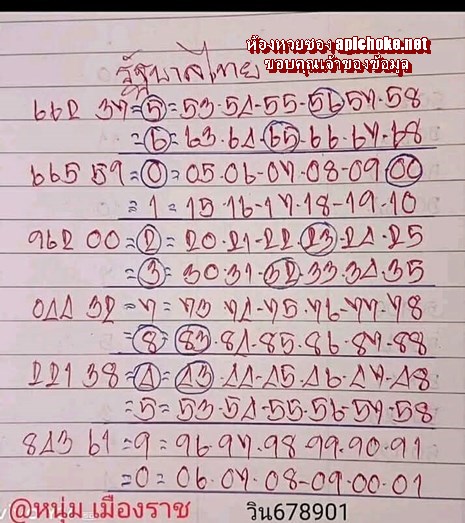 ห้องหวยซอง apichoke.net
ขอบคุณเจ้าของข้อมูล
รัฐบาลไทย
662 37=5=53-54-55-56-57-58
=6=63-64-65-66-67-68
665 59=0=05-06-07-08-09-00
=1=15-16-17-18-19-10
962 00=2=20-21-22-23-24-25
=3=30-31-32-33-34-35
044 32=7=73-74-75-76-77-78
=8=83-84-85-86-87-88
221 38=4=43-44-45-46-47-48
=5=53-54-55-56-57-58
843 61=9=96-97-98-99-90-91
=0=06-07-08-09-00-01
@หนุ่ม เมืองราช วิน678901